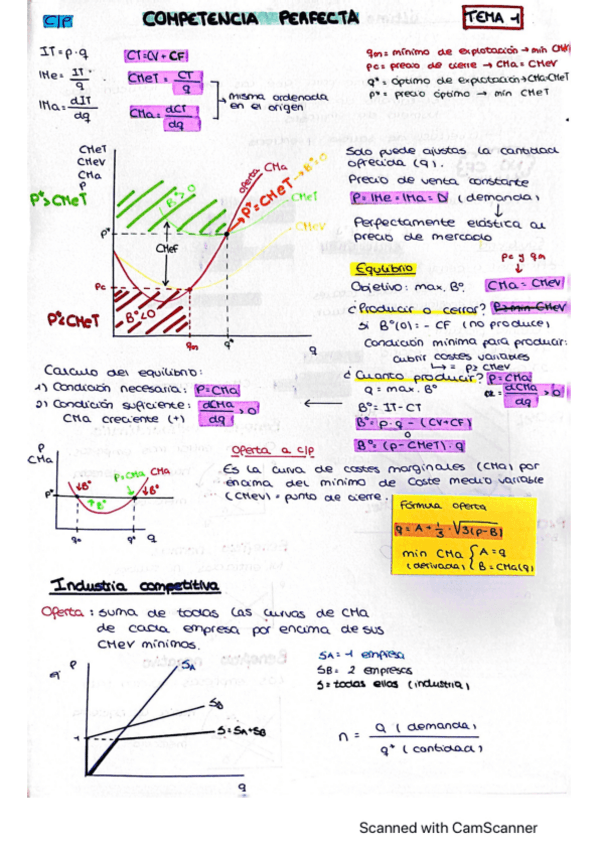 C/P
COMPETENCIA PERFECTA
TEMA -1
IT = p·q
IMe = IT / q
IMa = dIT / dq
CT = CV + CF
CMeT = CT / q
CMa = dCT / dq
misma ordenada
en el origen
qm = mínimo de explotación → min CMeV
pc = precio de cierre → CMa = CMeV
q* = óptimo de explotación → CMa=CMeT
p* = precio óptimo → min CMeT
CMeT
CMeV
CMa
P
P*≥CMeT
B°>0
oferta
CMa
P*=CMeT → B°=0
CMeT
CMeV
CMeF
P*
Pc
B°<0
P*≤CMeT
qm
q*
q
Solo puede ajustar la cantidad
ofrecida (q).
Precio de venta constante
P = IMe = IMa = D (demanda)
Perfectamente elástica al
precio de mercado
Equilibrio
pc y qm
Objetivo: max. B°.
CMa = CMeV
¿Producir o cerrar?
P≥min CMeV
si B°(0) : - CF (no produce)
Condición mínima para producir:
cubrir costes variables
= p≥ CMeV
¿Cuanto producir?
P=CMa
q = max. B°
dCMa / dq > 0
B° = IT - CT
B° = p·q - (CV+CF)
o
B° = (p - CMeT) · q
Calculo del equilibrio:
1) Condición necesaria: P=CMa
2) Condición suficiente: dCMa / dq > 0
CMa creciente (+)
P
CMa
P*
↓B°
↑B°
P=CMa
CMa
↓B°
q0
q*
q
Oferta a c/p
Es la curva de costes marginales (CMa) por
encima del mínimo de coste medio variable
(CMeV) = punto de cierre.
Fórmula oferta
q = A + 1/3 · √3(p-B)
min CMa
(derivada)
A = q
B = CMa(q)
Industria competitiva
Oferta : suma de todas las curvas de CMa
de cada empresa por encima de sus
CMeV mínimos.
P
SA
SB
S = SA+SB
q
SA = 1 empresa
SB = 2 empresas
S = todas ellas (industria)
n = Q (demanda) / q* (cantidad)
Scanned with CamScanner